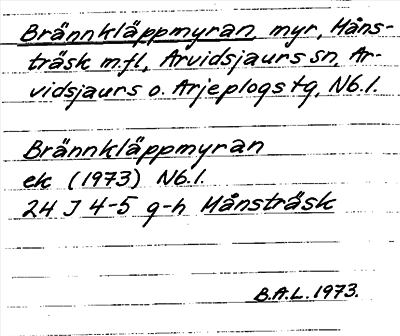 Brännkläppmyran, myr, Måns-
träsk m.fl., Arvidsjaurs sn, Ar-
vidsjaurs o. Arjeplogs tg, Nb.l.
Brännkläppmyran
ek (1973) Nb.l.
24 J 4-5 g-h Månsträsk
B.A.L. 1973.